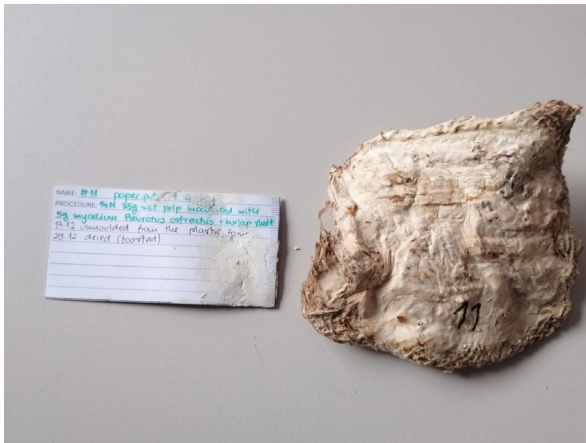 NAME: #11 paper
PROCEDURE: 35g wet pulp inoculated with
5g mycelium Pleurotus ostreatus + burlap sheet
17.12 unmoulded from the plastic form
29.12 dried (toasted)
11